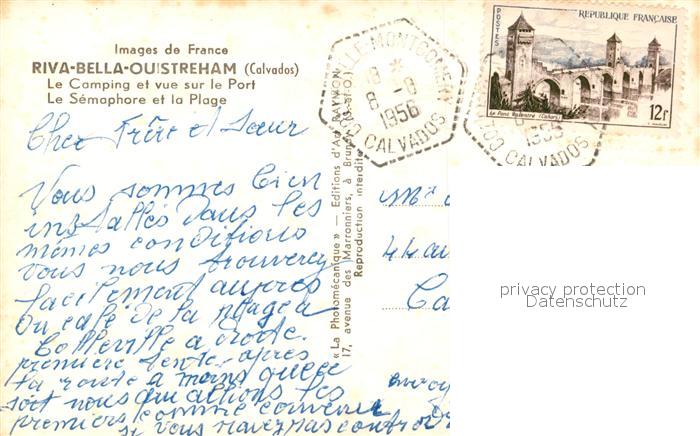 Images de France
RIVA-BELLA-OUISTREHAM (Calvados)
Le Camping et vue sur le Port
Le Sémaphore et la Plage
Cher Frère et Sœur
Vous sommes bien
installés dans les
mêmes conditions
vous nous trouverez
facilement auprès
du café de la plage à
Colleville a droite
première tente après
la route a moins que
soit nous
premiers comme convenu
si vous navez pas
"La Photomécanique" — Editions d'Art RAYMON
17, avenue des Marronniers, à Brunoy (S.-&-O.)
Reproduction interdite
COLLEVILLE-MONTGOMERY
18 *
8 - 8
1956
CALVADOS
POSTES
REPUBLIQUE FRANÇAISE
Le Pont Valentré (Cahors)
12f
CALVADOS
44 au
Ca
envoy
privacy protection
Datenschutz